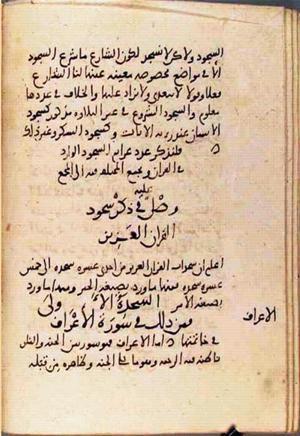 السجود ولا كل سجود لكون الشارع ما شرع السجود
الا في مواضع مخصوصة معينة عينها لنا الشارع
فعلا وقولا لا يتعدى ولا يزاد عليها والخلاف في عددها
معلوم والسجود المشروع في غير التلاوة مذكور كسجود
الانسان عند رويه الايات وكسجود الشكر وغير ذلك
فلنذكر عدد عزايم السجود الوارد
في القران من جميع المختلف فيه الى المجمع
عليه
وصل في ذكر سجود
القران العزيز
اعلم ان سجدات القران العزيز من احدى عشرة سجدة الى خمس
عشرة سجدة فمنها ما ورد بصيغة الخبر ومنها ما ورد
بصيغة الامر السجدة الاولى
فمن ذلك في سورة الاعراف
في خاتمتها اما الاعراف فهو سور بين الجنة والنار
باطنه فيه الرحمة وهو ما يلي الجنة وظاهره من قبله
الاعراف